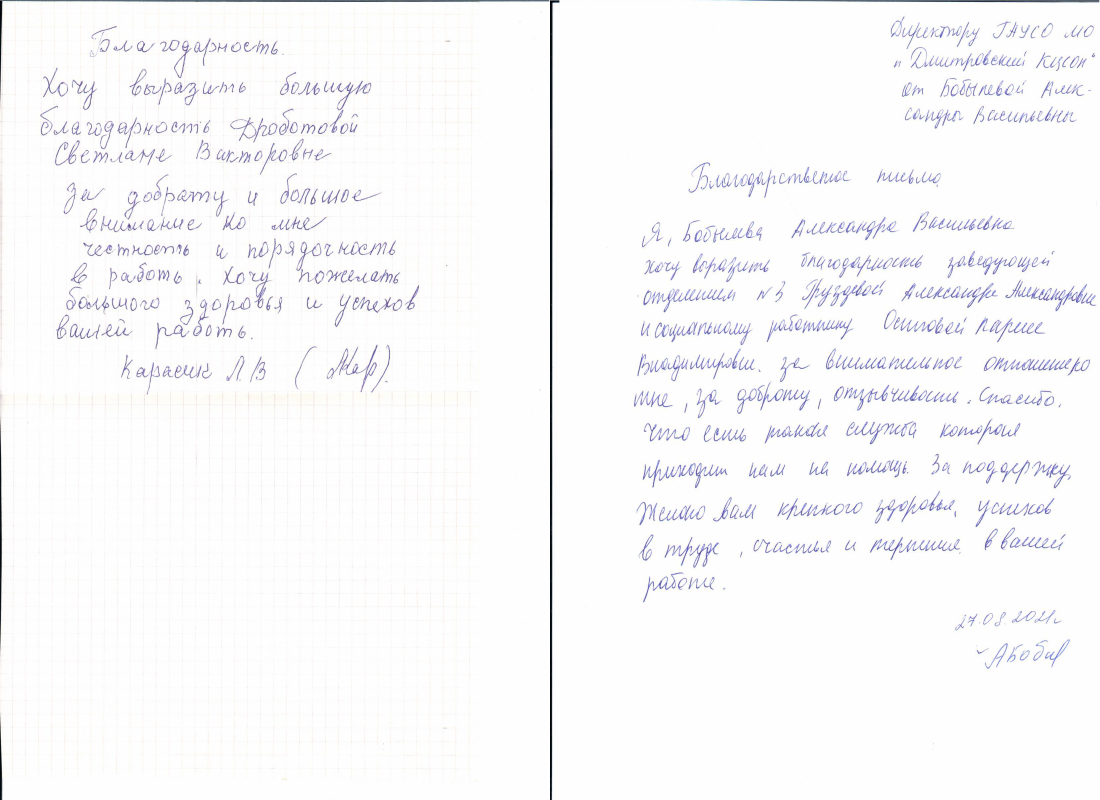 Благодарность.
Хочу выразить большую
благодарность Дроботовой
Светлане Викторовне
за доброту и большое
внимание ко мне
честность и порядочность
в работь. Хочу пожелать
большого здоровья и успехов
вашей работь.
Карасик Л.В (Жкар).
Директору ГАУСО МО
"Дмитровский КЦСОН"
от Бобылевой Алек-
сандры Васильевны
Благодарственое письмо.
Я, Бобылева Александра Васильевна
хочу выразить благодарность заведующей
отделением №3 Груздевой Александре Александровне
и социальному работнику Осиповой Ларисе
Владимировне. за внимательное отношение ко
мне, за доброту, отзывчивость. Спасибо.
Что есть такая служба которая
приходит нам на помощь. За поддержку.
Желаю вам крепкого здоровья, успехов
в труде, счастья и терпения. в вашей
работе.
27.08 2021г
АБобыл